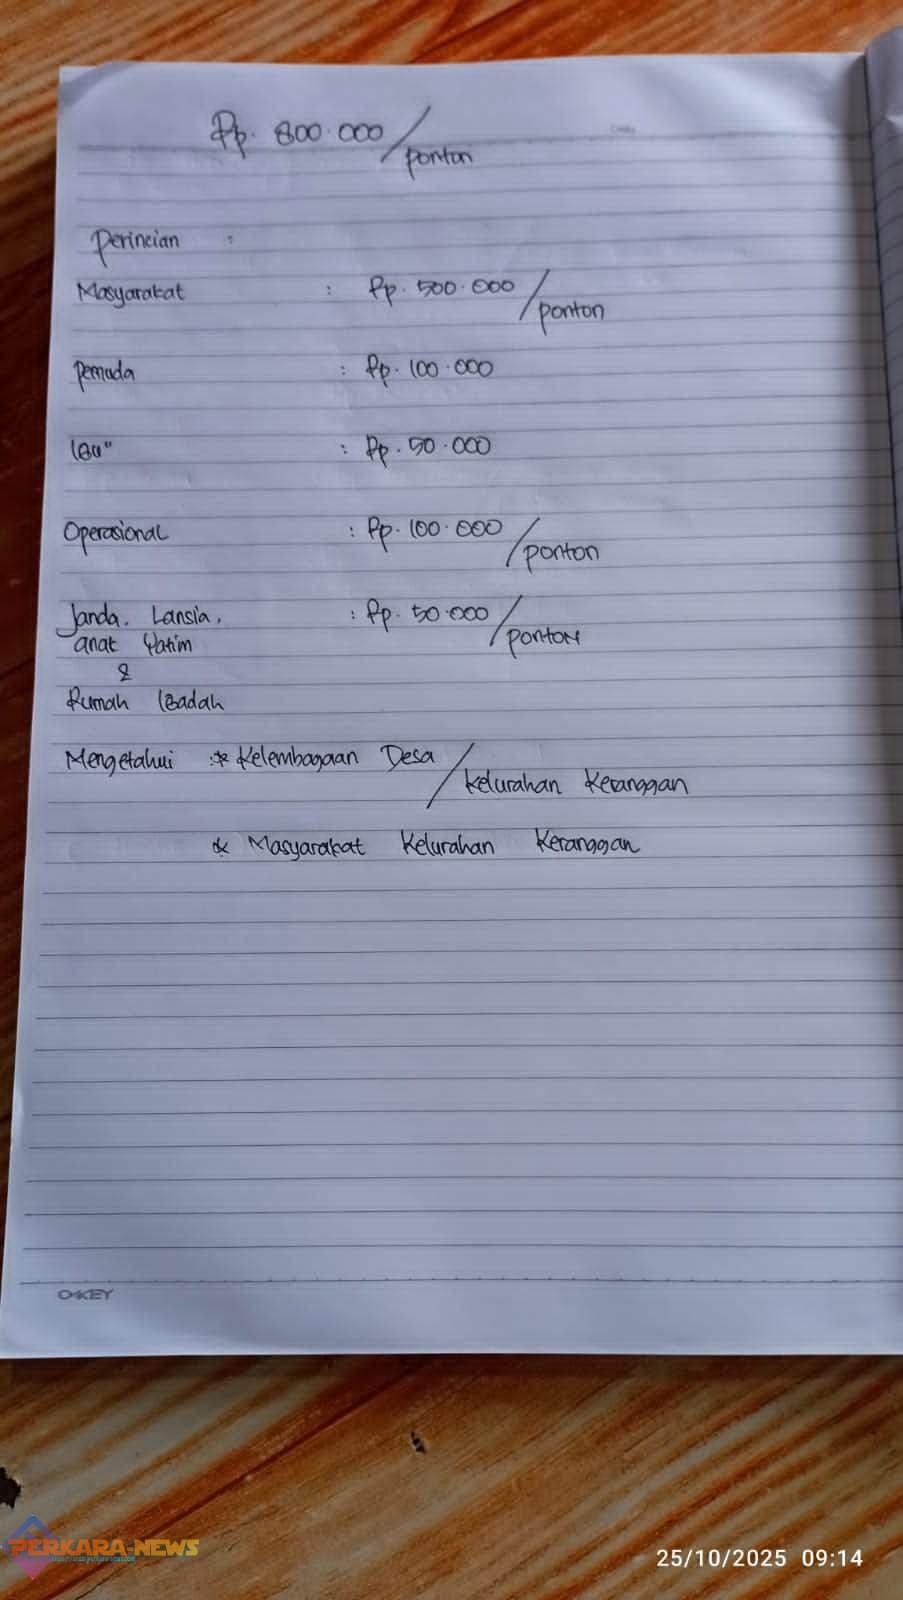 Rp. 800.000/ponton
Perincian :
Masyarakat : Rp. 500.000/ponton
Pemuda : Rp. 100.000
Ibu" : Rp. 50.000
Operasional : Rp. 100.000/ponton
Janda, Lansia, : Rp. 50.000/ponton
anak Yatim
&
Rumah Ibadah
Mengetahui : * Kelembagaan Desa/Kelurahan Keranggan
* Masyarakat Kelurahan Keranggan
OKEY
PERKARA-NEWS
25/10/2025 09:14